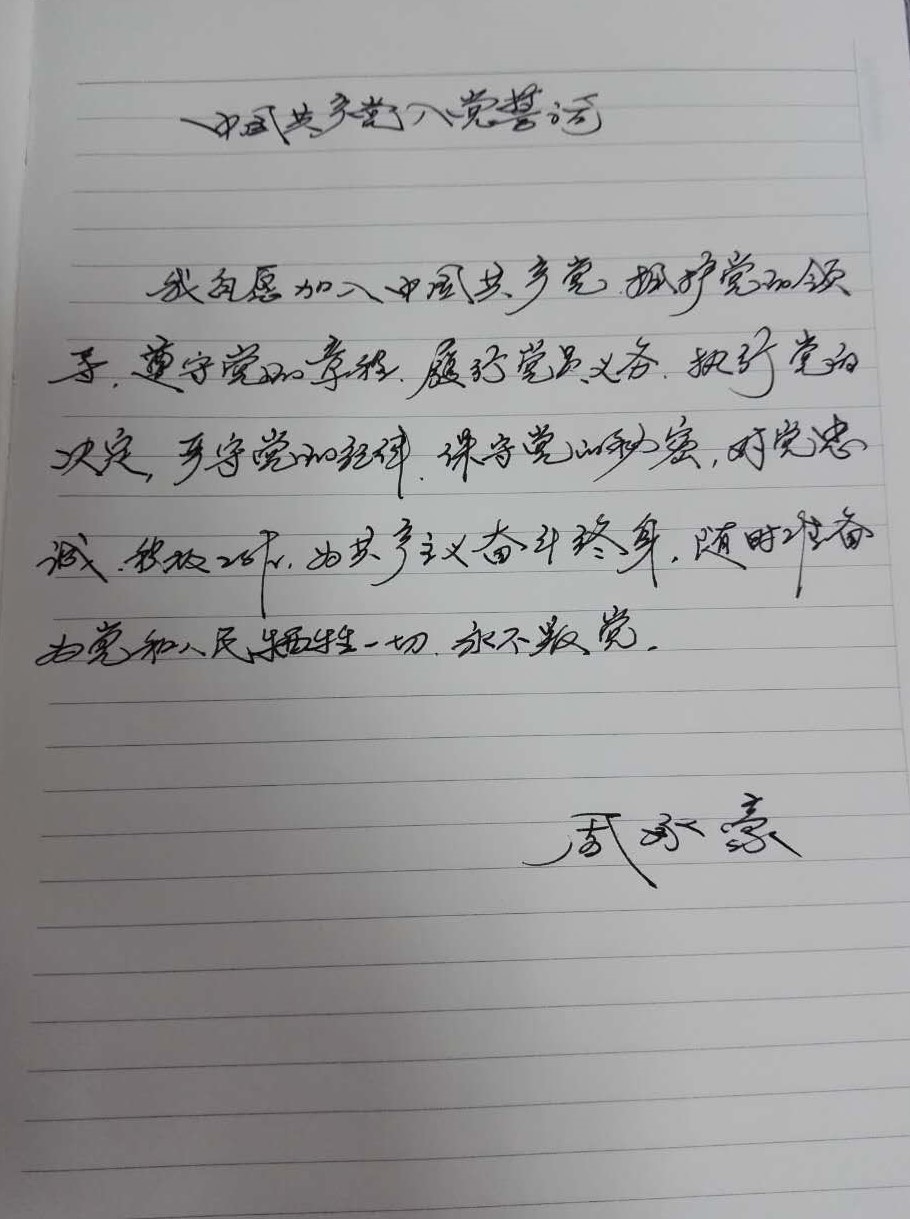 中国共产党入党誓词
我自愿加入中国共产党,拥护党的领
导,遵守党的章程,履行党员义务,执行党的
决定,严守党的纪律,保守党的秘密,对党忠
诚,积极工作,为共产主义奋斗终身,随时准备
为党和人民牺牲一切,永不叛党。
周承豪